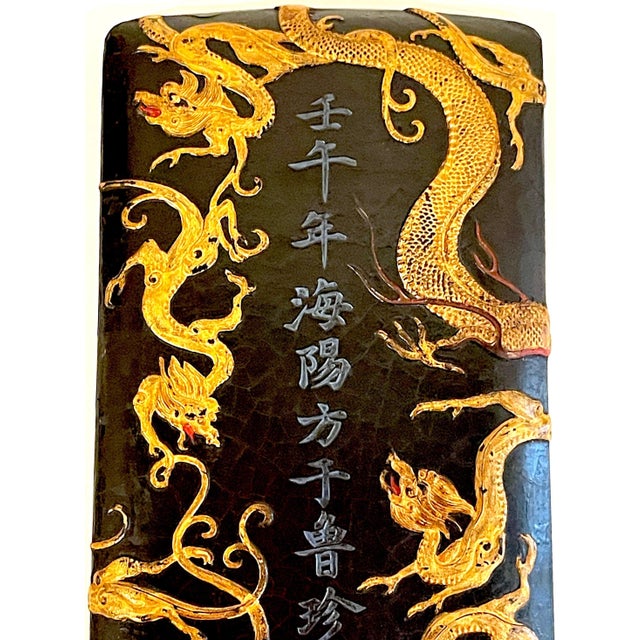 壬午年海陽方于魯珍